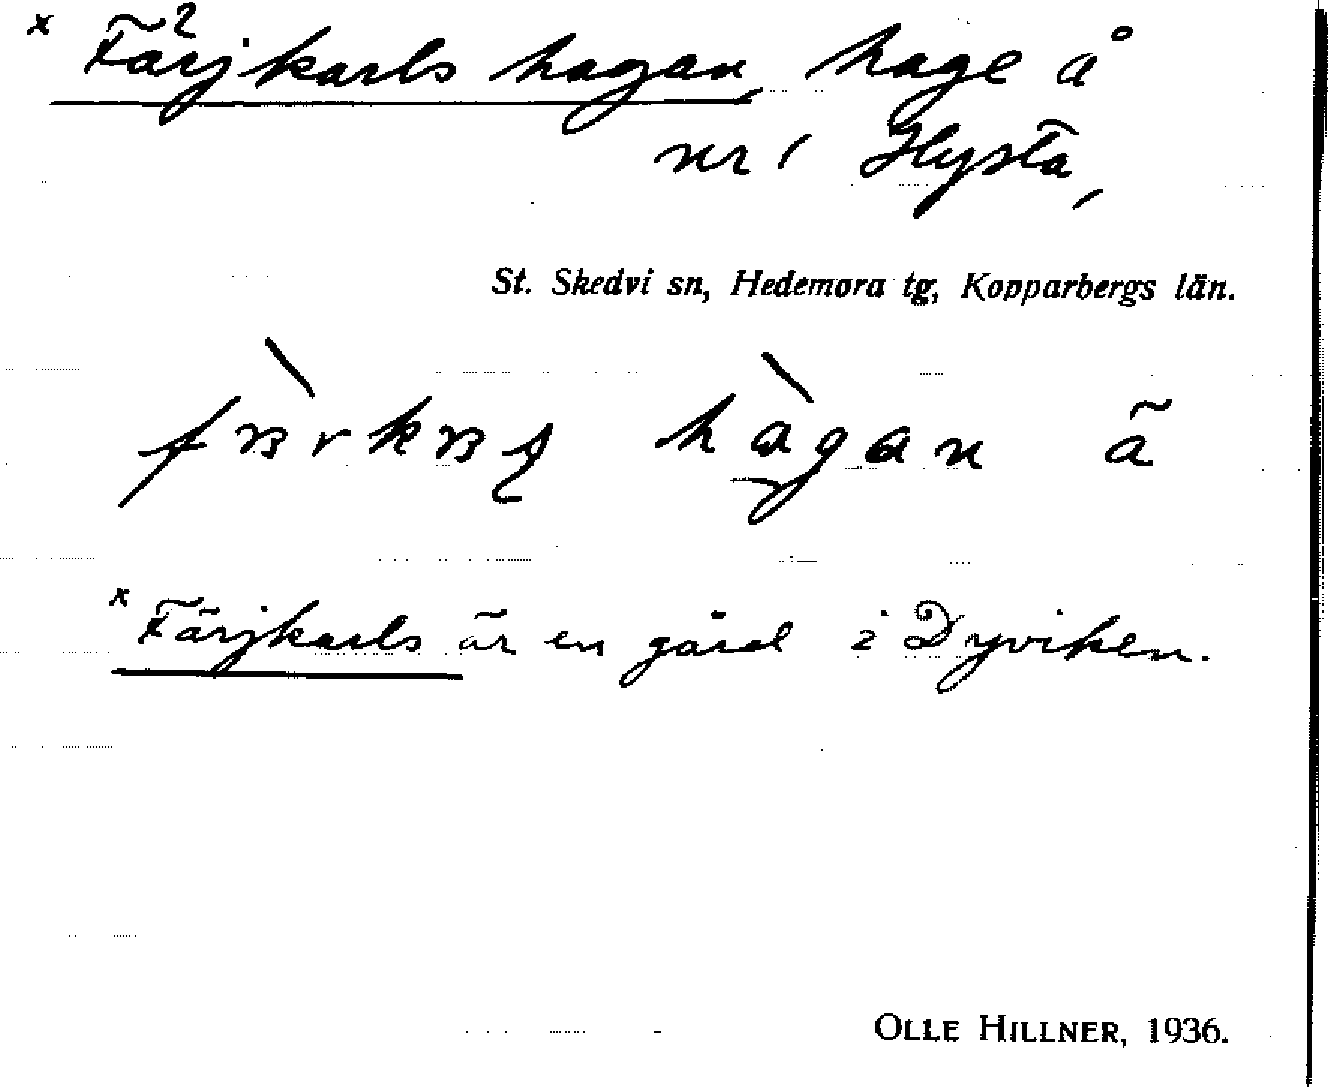 x Färjkarls hagan, hage å
nr 1 Hysta,
St. Skedvi sn, Hedemora tg, Kopparbergs län.
hàgan ã
x Färjkarls är en gård i Dyviken.
OLLE HILLNER, 1936.